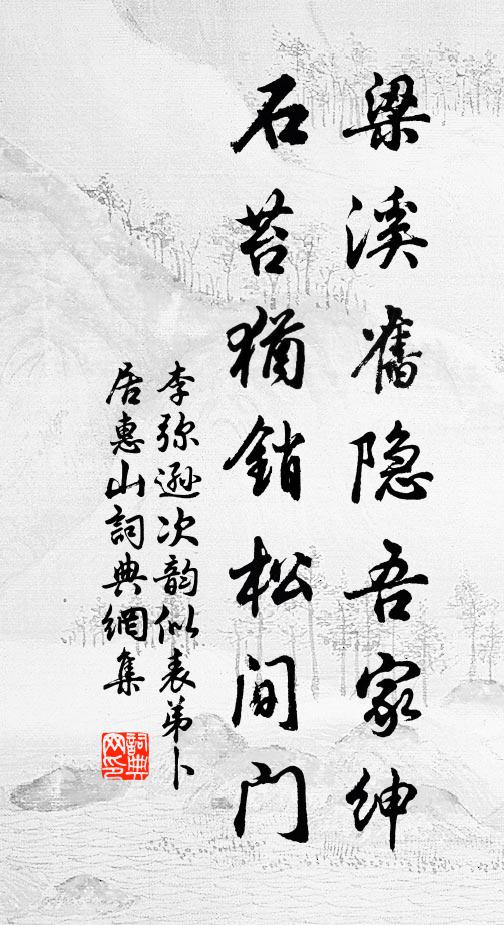 梁溪舊隐吾家紳
石苔猶銷松间门
李弥遜次韵似表弟卜
居惠山詞典網集
詞典网印